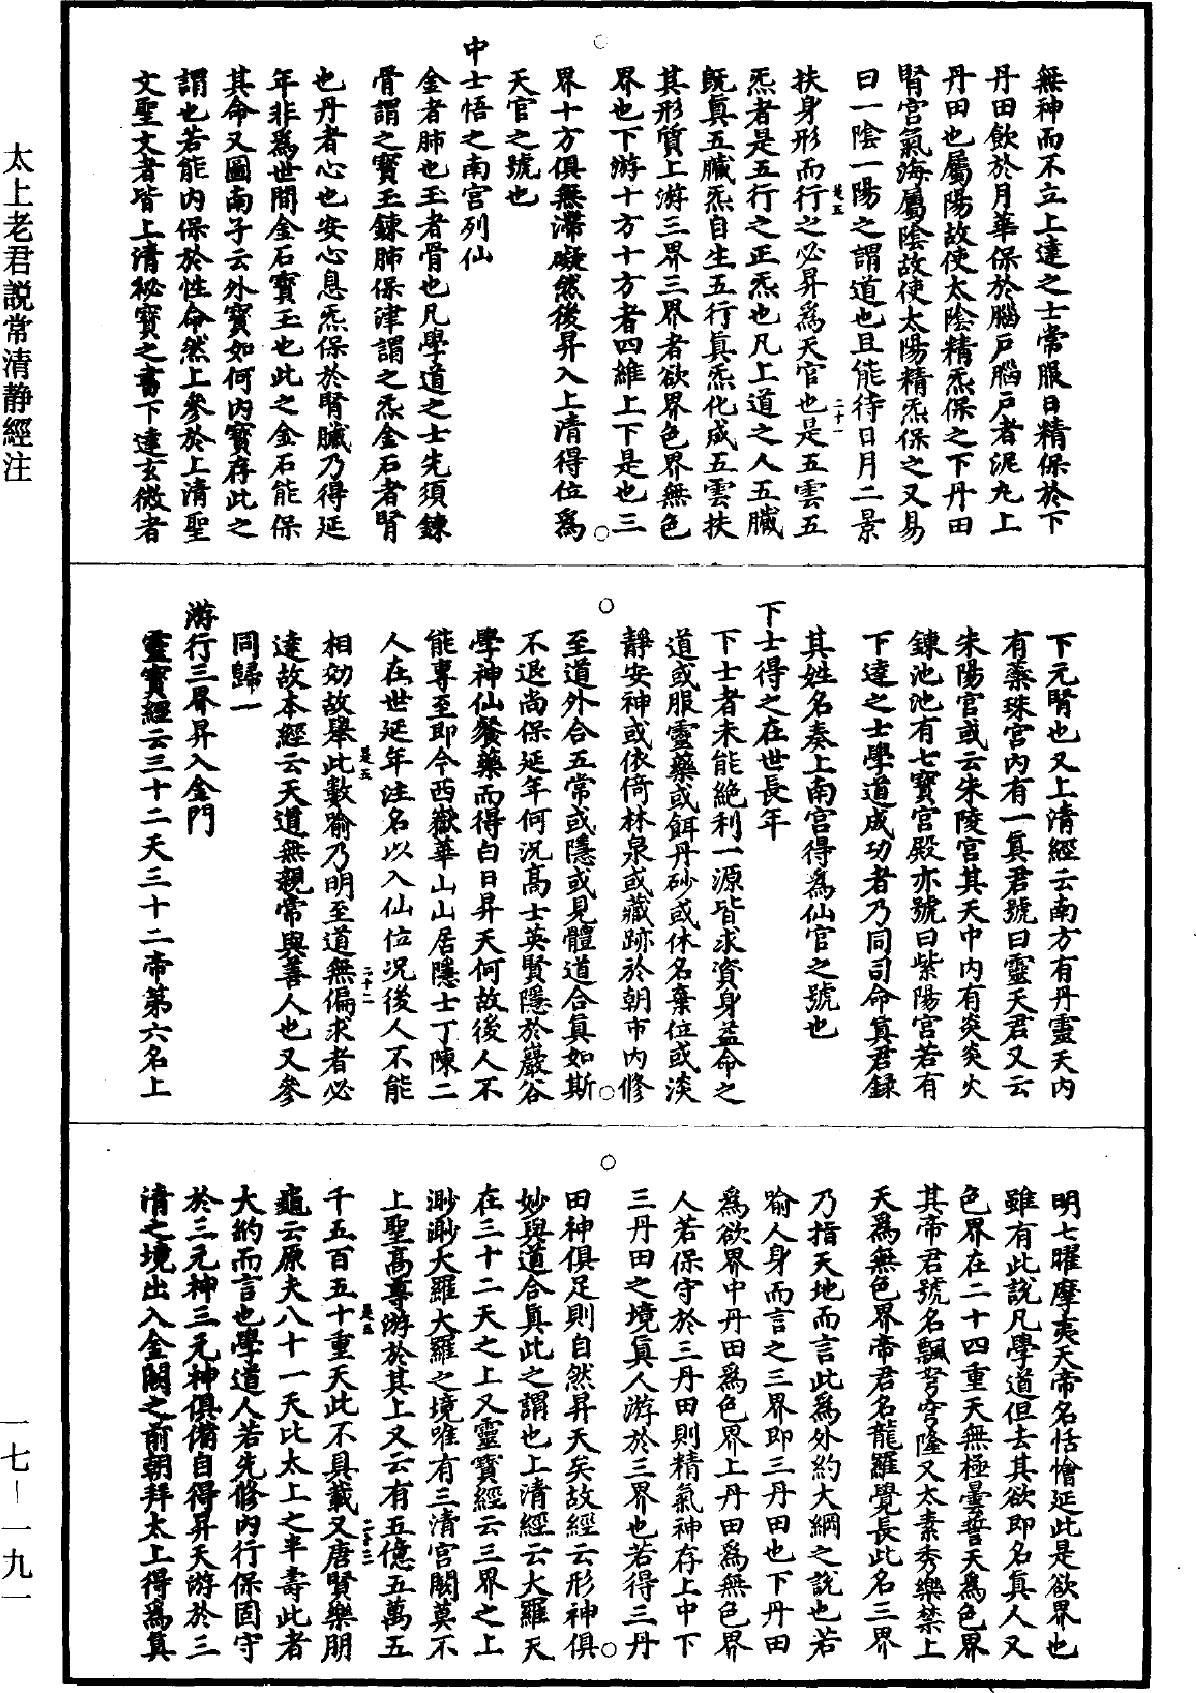 太上老君説常清静經注
無神而不立上達之士常服日精保於下
丹田飲於月華保於腦戸腦戸者泥丸上
丹田也屬陽故使太陰精炁保之下丹田
腎宫氣海屬陰故使太陽精炁保之又易
曰一陰一陽之謂道也且能待日月二景
是五
二十一
扶身形而行之必昇爲天官也是五雲五
炁者是五行之正炁也凡上道之人五臟
既真五臟炁自生五行真炁化成五雲扶
其形質上游三界三界者欲界色界無色
界也下游十方十方者四維上下是也三
界十方俱無滯礙然後昇入上清得位爲
天官之號也
中士悟之南宫列仙
金者肺也玉者骨也凡學道之士先須鍊
骨謂之寳玉鍊肺保津謂之炁金石者腎
也丹者心也安心息炁保於腎臟乃得延
年非爲世間金石寳玉也此之金石能保
其命又圖南子云外寳如何内寳存此之
謂也若能内保於性命然上參於上清聖
文聖文者皆上清祕寳之書下達玄微者
下元腎也又上清經云南方有丹靈天内
有蘂珠宫内有一真君號曰靈天君又云
朱陽宫或云朱陵宫其天中内有炎炎火
鍊池池有七寳宫殿亦號曰紫陽宫若有
下達之士學道成功者乃同司命真君録
其姓名奏上南宫得爲仙官之號也
下士得之在世長年
下士者未能絶利一源皆求資身益命之
道或服靈藥或餌丹砂或休名棄位或淡
靜安神或依倚林泉或藏跡於朝市内修
至道外合五常或隱或見體道合真如斯
不退尚保延年何況高士英賢隱於巖谷
學神仙餐藥而得白日昇天何故後人不
能專至即今西嶽華山山居隱士丁陳二
人在世延年注名以入仙位况後人不能
是五
二十二
相効故舉此數喻乃明至道無偏求者必
達故本經云天道無親常與善人也又參
同歸一
游行三界昇入金門
靈寳經云三十二天三十二帝第六名上
明七曜摩夷天帝名恬憺延此是欲界也
雖有此說凡學道但去其欲即名真人又
色界在二十四重天無極曇誓天爲色界
其帝君號名飄弩穹隆又太素秀樂禁上
天爲無色界帝君名龍羅覺長此名三界
乃指天地而言此爲外約大綱之說也若
喻人身而言之三界即三丹田也下丹田
爲欲界中丹田爲色界上丹田爲無色界
人若保守於三丹田則精氣神存上中下
三丹田之境真人游於三界也若得三丹
田神俱足則自然昇天矣故經云形神俱
妙與道合真此之謂也上清經云大羅天
在三十二天之上又靈寳經云三界之上
渺渺大羅大羅之境唯有三清宫闕莫不
上聖高尊游於其上又云有五億五萬五
是五
二十三
千五百五十重天此不具載又唐賢樂朋
龜云原夫八十一天比太上之半壽此者
大約而言也學道人若先修内行保固守
於三元神三元神俱備自得昇天游於三
清之境出入金闕之前朝拜太上得爲真
一七－一九一